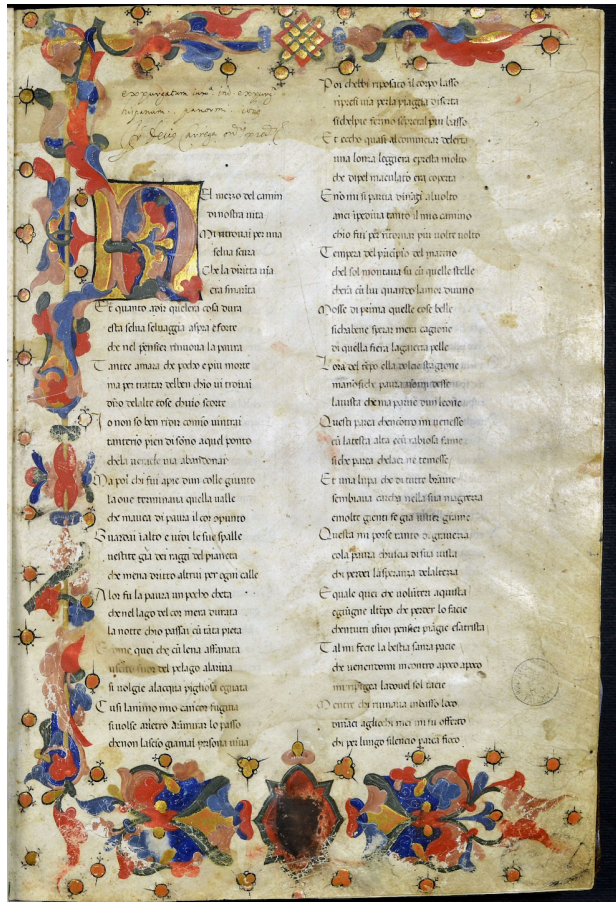 expurgatum
El mezzo del camin
di nostra uita
Mi ritrouai per una
selua scura
Che la diritta uia
era smarita
Et quanto adir quelera cosa dura
esta selua seluaggia aspra e forte
che nel pensier rinuoua la paura
Tante amara che pocho e piu morte
ma per trattar delben chio ui trouai
diro delalte cose chiuio scorte
Io non so ben ridir comio uintrai
tanterio pien di sonno aquel ponto
chela uerace uia abandonai
Ma poi chi fui apie dun colle giunto
la oue terminaua quella ualle
che mauea di paura il cor opunto
Guardai ialto e uidi le sue spalle
uestite gia dei raggi del pianeta
che mena diritto altrui per ogni calle
Alor fu la paura un pocho cheta
che nel lago del cor mera durata
la notte chio passai cu tata pieta
come quei che cu lena affanata
uscito fuor del pelago alariua
si uolgie alacqua pigliosa eguata
Cusi lanimo mio cancor fugiua
si uolse arietro arimirar lo passo
che non lascio giamai persona uiua
Poi chelbi riposato il corpo lasso
ripresi uia per la piaggia diserta
sichelpie fermo sempreral piu basso
Et eccho quasi al cominciar delerta
una lonza leggiera epresta molto
che dipel maculato era coperta
E no mi si partia dinazi aluolto
anci ipediua tanto il mio camino
chio fui per ritornar piu uolte uolto
Tempera del pricipio del matino
chel sol montaua su cu quelle stelle
chera cu lui quando lamor diuino
Mosse di prima quelle cose belle
sichabene sperar mera cagione
di quella fiera lagaetta pelle
Lora del tepo ella dolcie stagione
ma no si che paura non mi desse
lauista che ma parue dun leone
Questi parea chencotro mi uenesse
cu latesta alta ecu rabiosa fame
siche parea chelaci ne temesse
Et una lupa che di tutte brame
sembiaua carcha nella sua magrezza
emolte gienti fe gia uiuer grame
Questa mi porse tanto di grauezza
cola paura chuscia di sua uista
chi perdei la speranza delalteza
E quale quei che uolutier aquista
egiugne iltepo che perder lo facie
chentutti isuoi pensier piagie esatrista
Tal mi fecie la bestia sanza pacie
che uenendomi incontro apoco apoco
mi ripigea laoue il sol tacie
Mentre chi ruinaua inbasso loco
dinaci agliochi mei mi fu offerto
chi per lungo silencio parea fioco